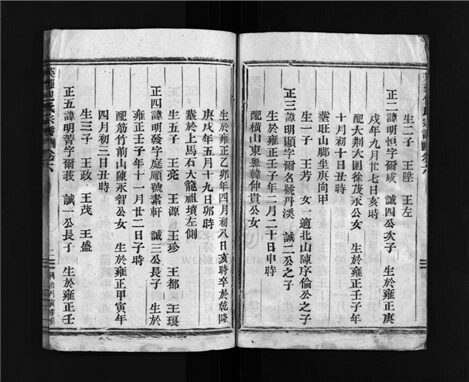 生二子 王陞 王左
正二諱明恒字爾咸 誠四公次子 生於雍正庚
戌年九月廿七日亥時
配大荆大園徐茂永公女 生於雍正壬子年
十月初十日丑時
葬
正三諱明顯字爾名號丹溪 誠二公之子
生於雍正壬子年二月二十日申時
配橫山東無韓仲貴公女
生一子 王芳 女一適北山陳序倫公之子
生於雍正乙卯年四月初八日亥時卒於乾隆
庚戌年五月十九日卯時
葬於上馬石大龍祖墳左側
生五子 王亮 王源 王珍 王都
正四諱明發字庭順號素軒 誠三公長子 生於
雍正壬子年十一月廿二日子時
配筋竹前山陳永智公女 生於雍正甲寅年
四月初三日丑時
生三子 王政 王茂 王盛
正五諱明善字爾 誠一公長子 生於雍正壬